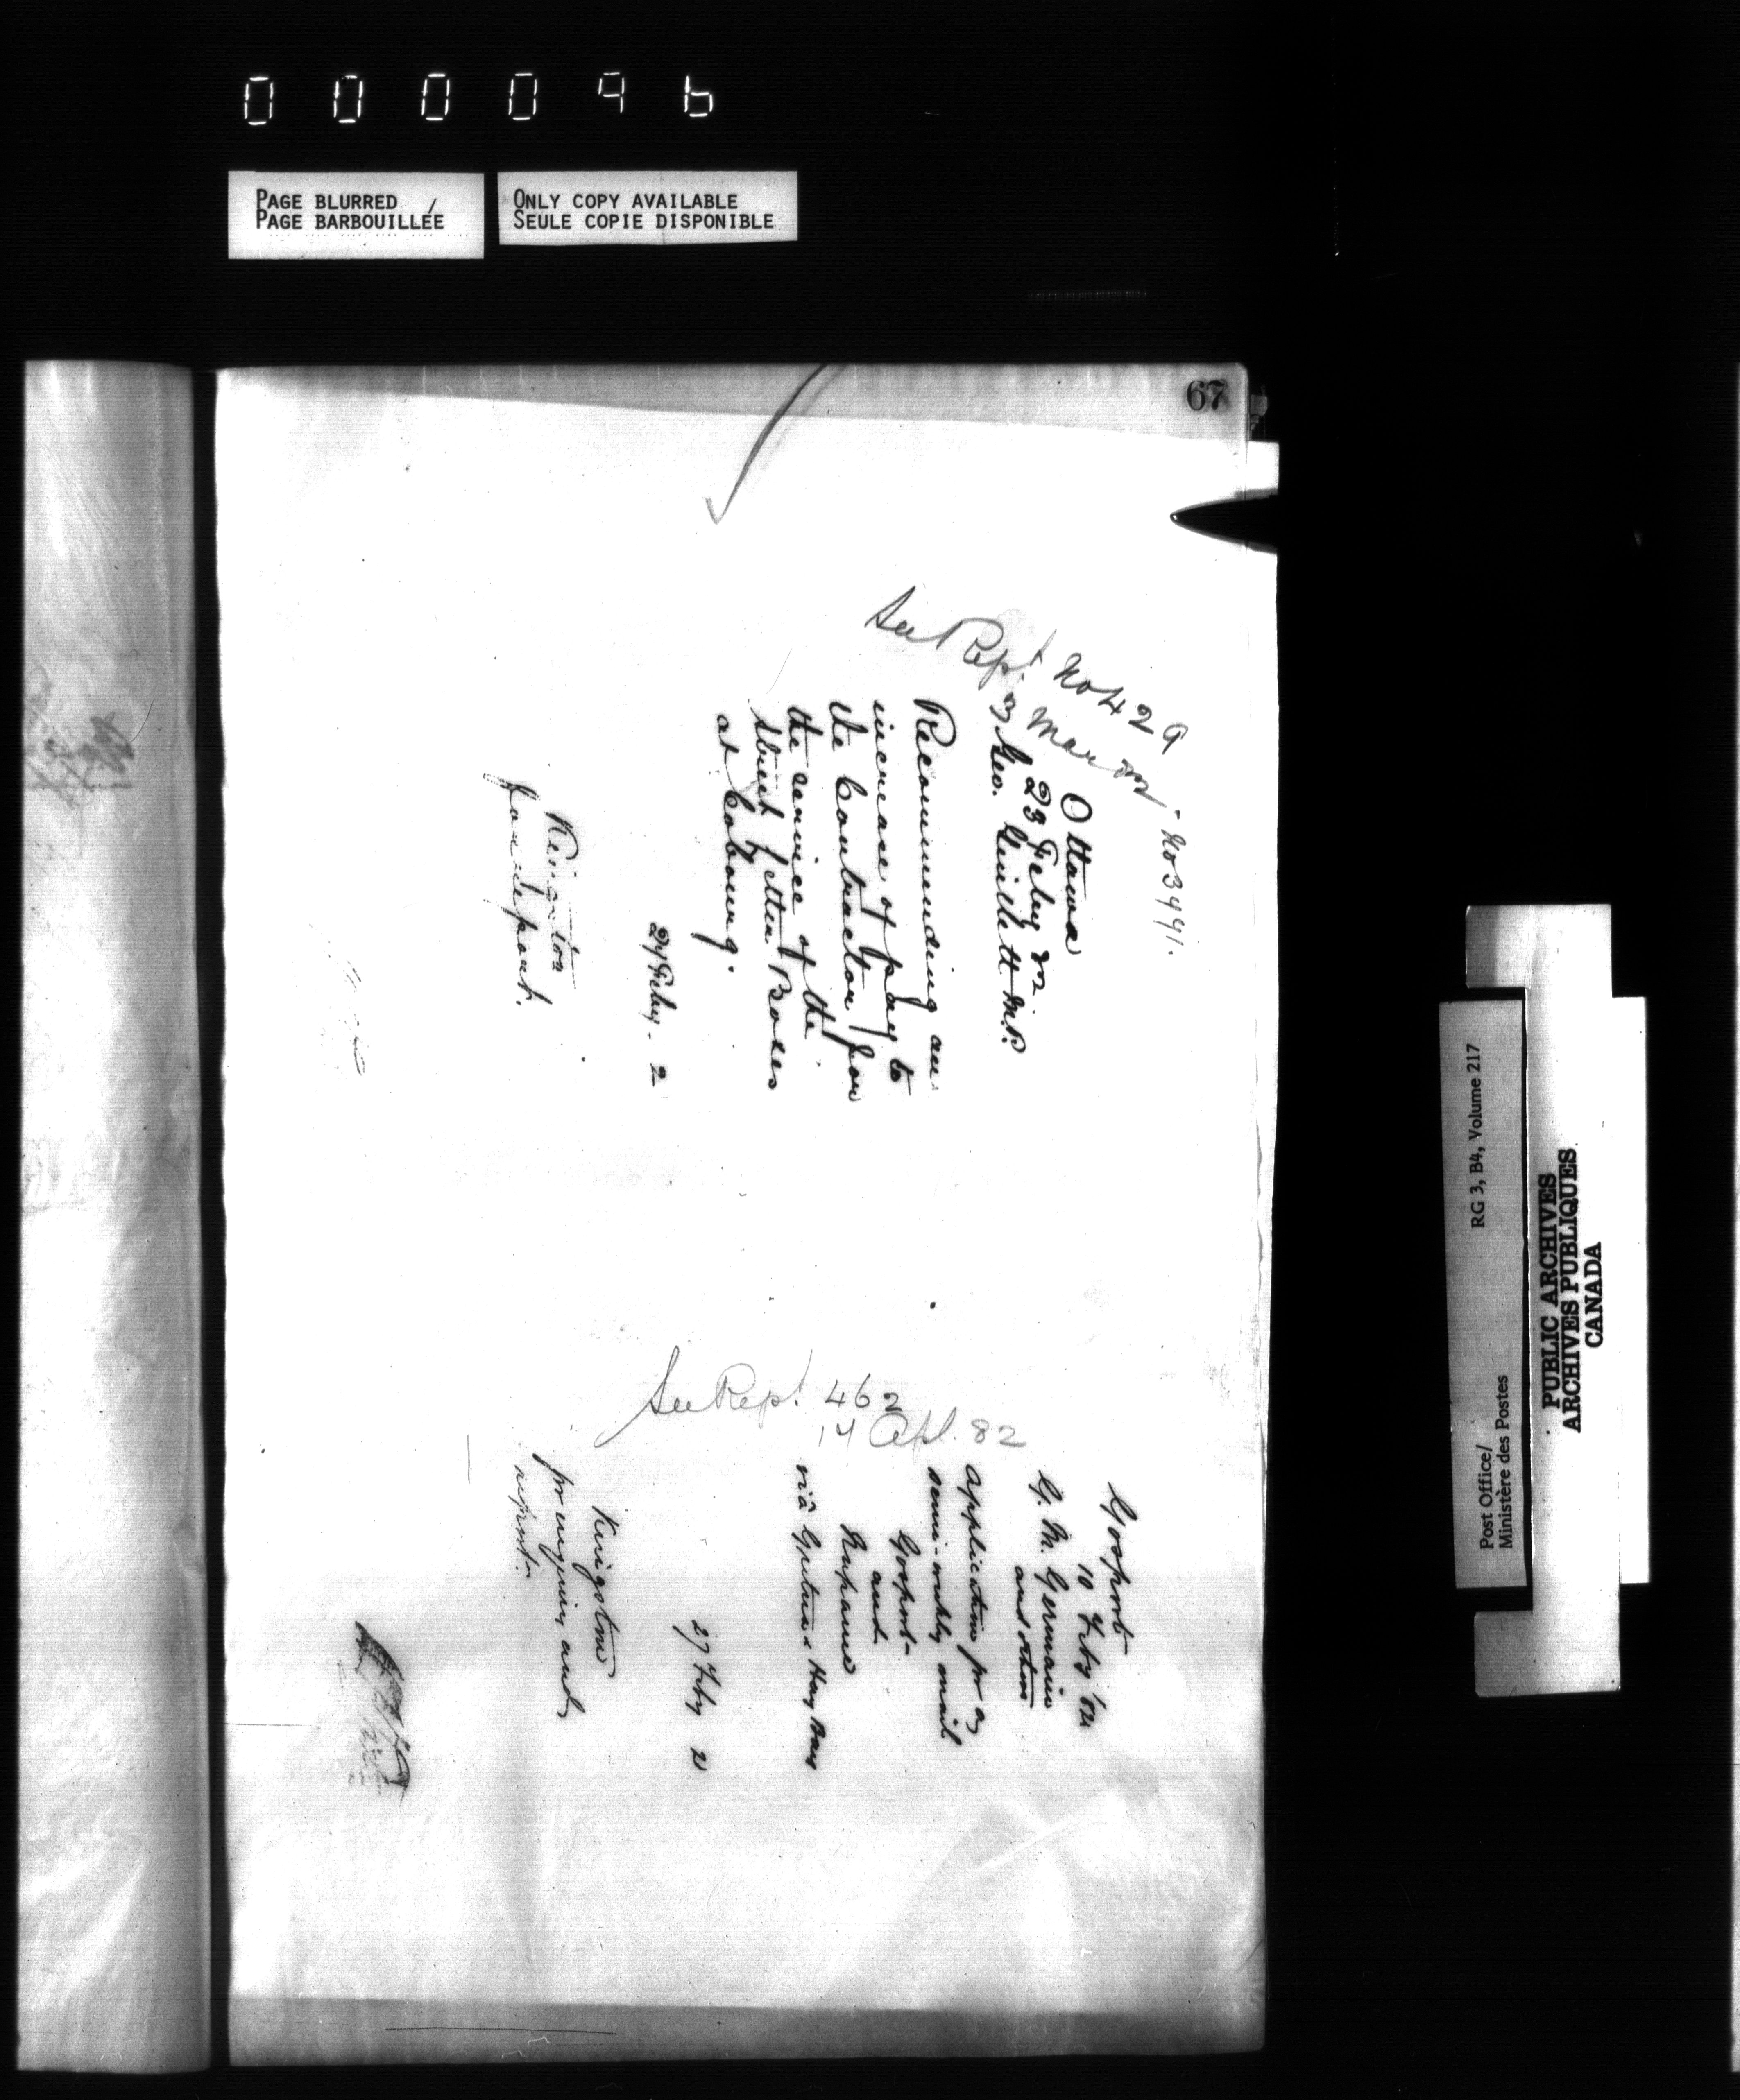 0 0 0 0 9 6
PAGE BLURRED
PAGE BARBOUILLÉE
ONLY COPY AVAILABLE
SEULE COPIE DISPONIBLE
67
See Rept. No 429
3 Mar
Ottawa
23 Feby
Geo. Guillett M.P.
Recommending an
increase of pay to
the Contractor for
the service of the
Street Letter Boxes
at Cobourg.
27 Feby. 2
Kingston
for report.
See Rept. 462
14 Apl. 82
Gosport
10 Feby '82
G. M. Germain
and others
Application for a
semi-weekly mail
Gosport
and
Napanee
viâ Gretna & Hay Bay
27 Feby 2
Kingston
for enquiry and
report.
RG 3, B4, Volume 217
Post Office/
Ministère des Postes
PUBLIC ARCHIVES
ARCHIVES PUBLIQUES
CANADA